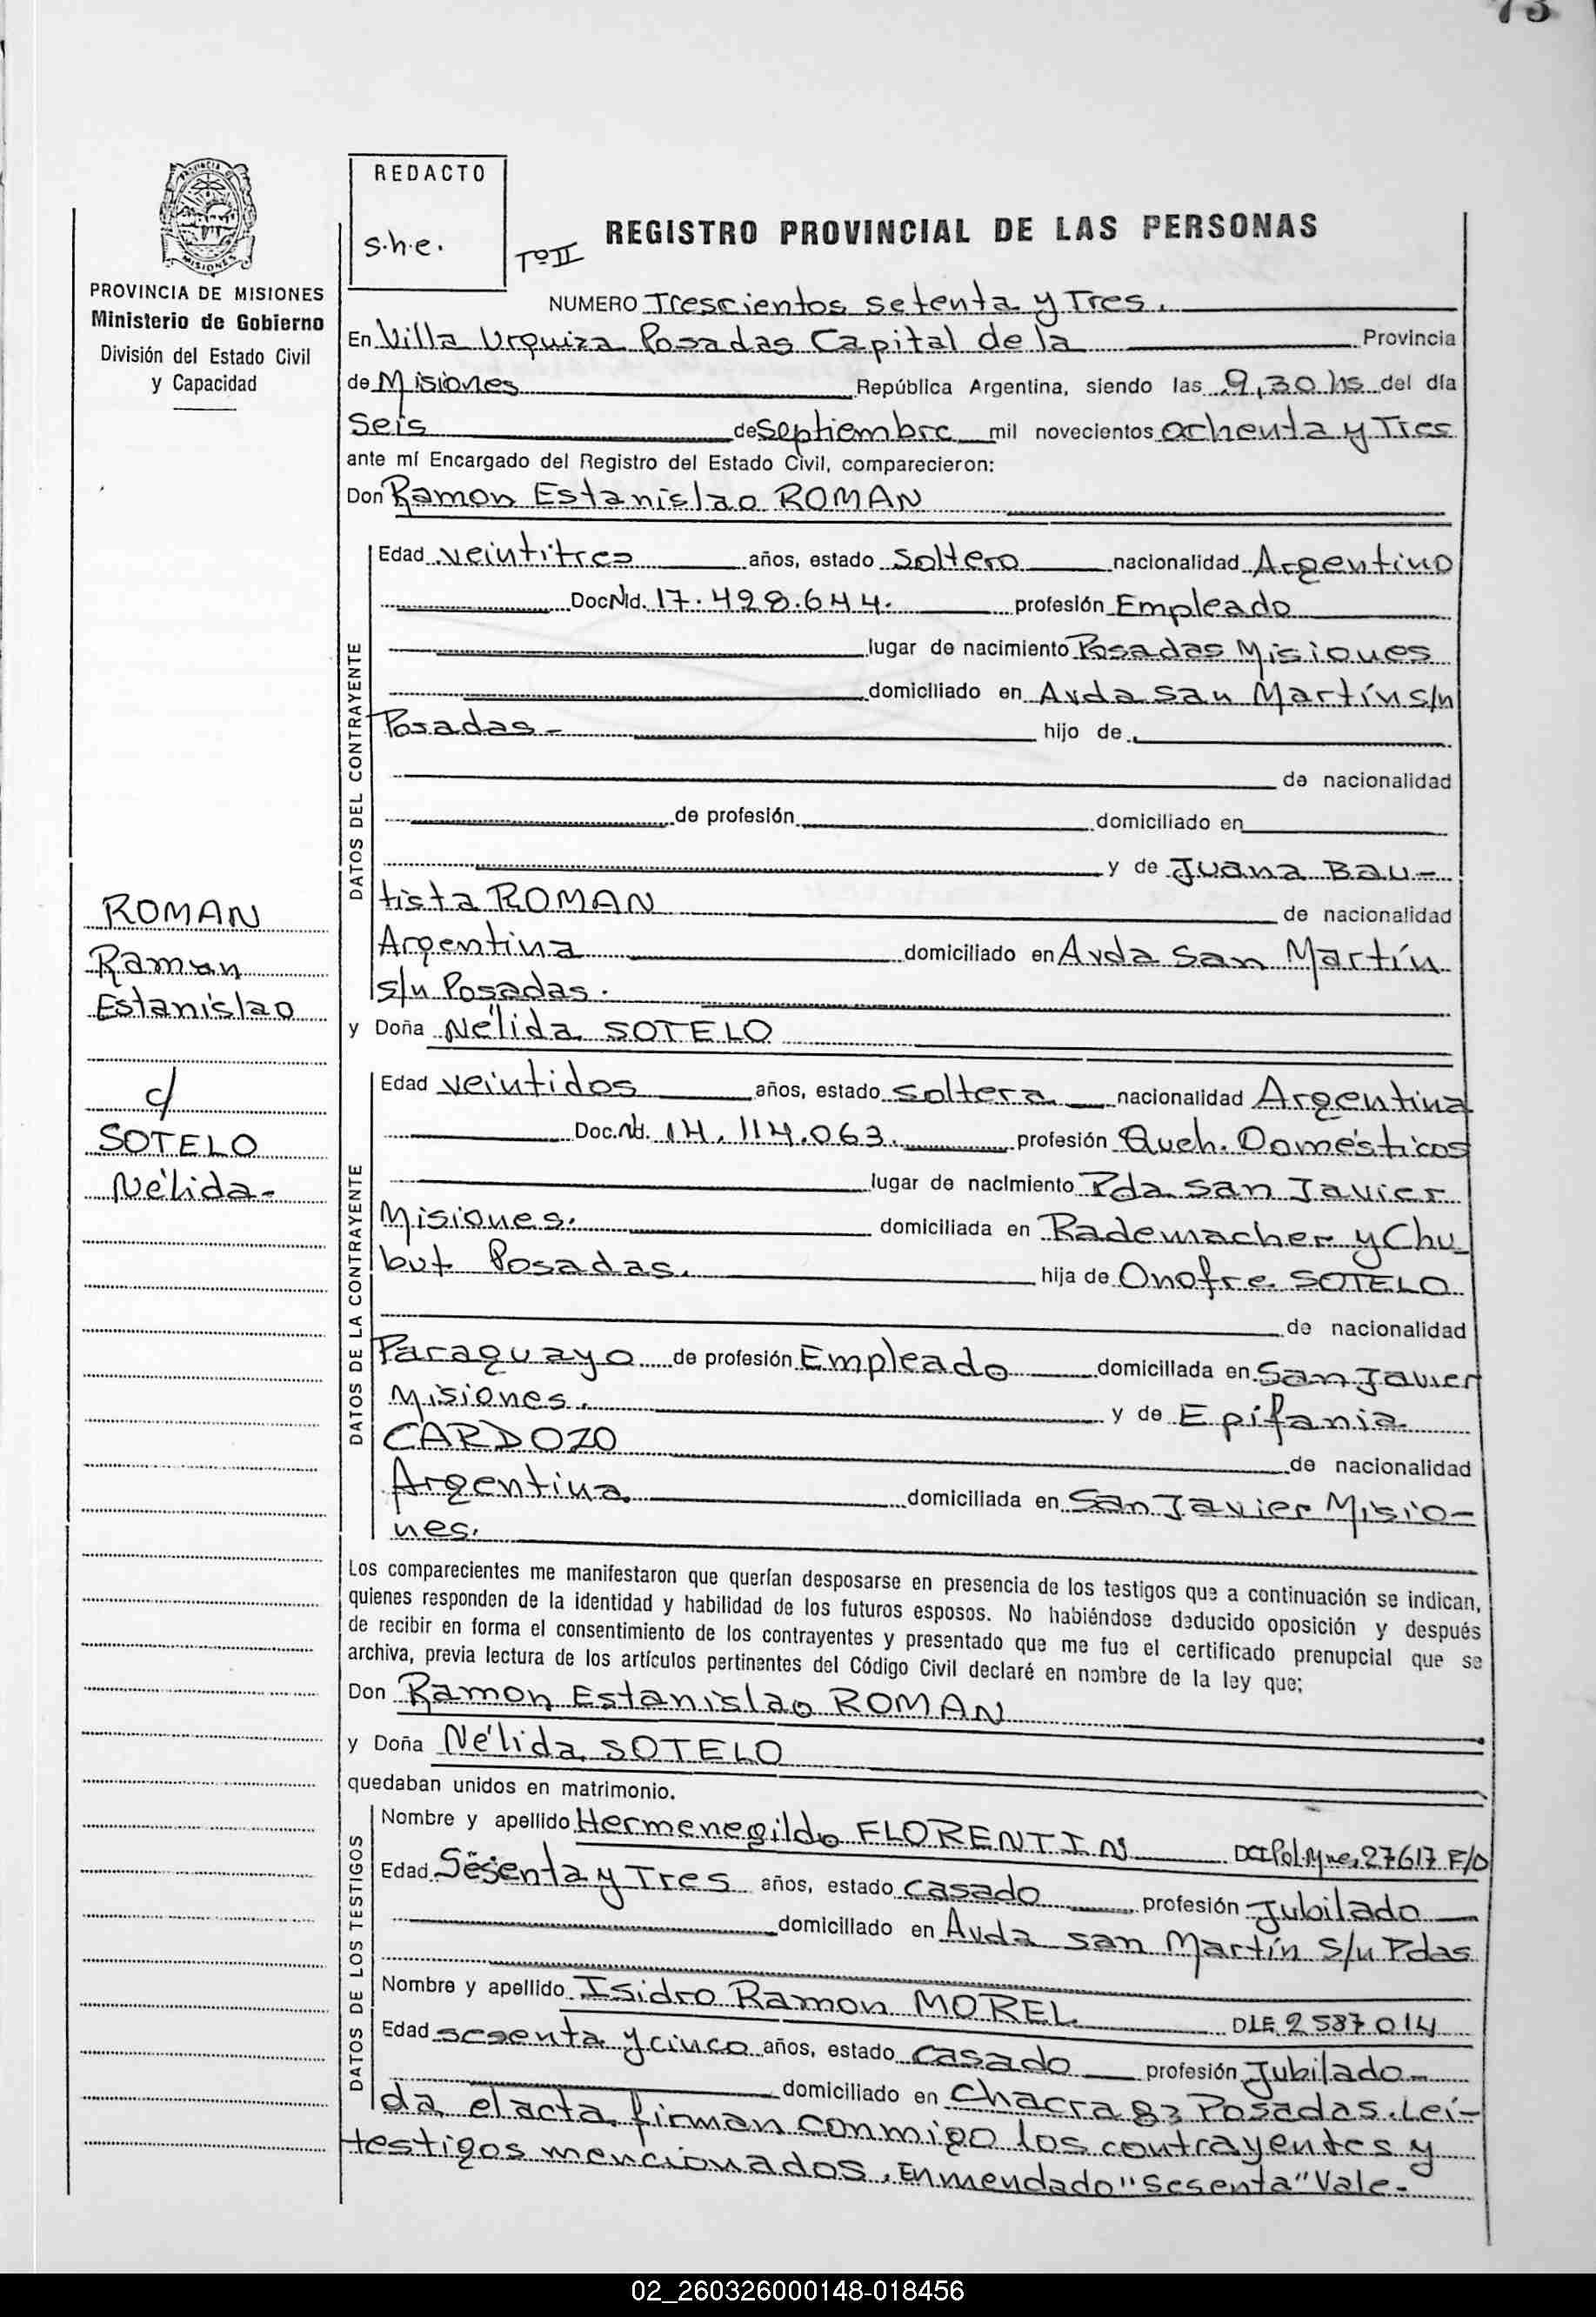 73
REDACTO
s.h.e.
Tº II
REGISTRO PROVINCIAL DE LAS PERSONAS
PROVINCIA DE MISIONES
Ministerio de Gobierno
División del Estado Civil
y Capacidad
NUMERO Trescientos setenta y Tres.
En Villa Urquiza Posadas Capital de la Provincia
de Misiones República Argentina, siendo las 9,30 hs del día
Seis de septiembre mil novecientos ochenta y Tres
ante mí Encargado del Registro del Estado Civil, comparecieron:
Don Ramon Estanislao ROMAN
DATOS DEL CONTRAYENTE
Edad veintitres años, estado soltero nacionalidad Argentino
Doc.Nd. 17.428.644. profesión Empleado
lugar de nacimiento Posadas Misiones
domiciliado en Avda San Martín s/n
Posadas- hijo de
de nacionalidad
de profesión domiciliado en
y de Juana Bau-
tista ROMAN de nacionalidad
Argentina domiciliado en Avda San Martín
s/n Posadas.
ROMAN
Ramon
Estanislao
c/
SOTELO
Nélida-
y Doña Nélida SOTELO
DATOS DE LA CONTRAYENTE
Edad veintidos años, estado soltera nacionalidad Argentina
Doc.Nd. 14.114.063. profesión Queh. Domésticos
lugar de nacimiento Pda San Javier
Misiones. domiciliada en Rademacher y Chu
but Posadas. hija de Onofre SOTELO
de nacionalidad
Paraguayo de profesión Empleado domiciliada en San Javier
Misiones. y de Epifania
CARDOZO de nacionalidad
Argentina domiciliada en San Javier Misio-
nes.
Los comparecientes me manifestaron que querían desposarse en presencia de los testigos que a continuación se indican,
quienes responden de la identidad y habilidad de los futuros esposos. No habiéndose deducido oposición y después
de recibir en forma el consentimiento de los contrayentes y presentado que me fue el certificado prenupcial que se
archiva, previa lectura de los artículos pertinentes del Código Civil declaré en nombre de la ley que;
Don Ramon Estanislao ROMAN
y Doña Nélida SOTELO
quedaban unidos en matrimonio.
DATOS DE LOS TESTIGOS
Nombre y apellido Hermenegildo FLORENTIN DCI Pol. Mnes. 27617 F/D
Edad Sesenta y Tres años, estado casado profesión Jubilado
domiciliado en Avda San Martín s/n Pdas
Nombre y apellido Isidro Ramon MOREL DLE 2587014
Edad sesenta y cinco años, estado casado profesión Jubilado
domiciliado en Chacra 83 Posadas. Leí-
da el acta firman conmigo los contrayentes y
testigos mencionados. Enmendado "Sesenta" Vale-
02_260326000148-018456